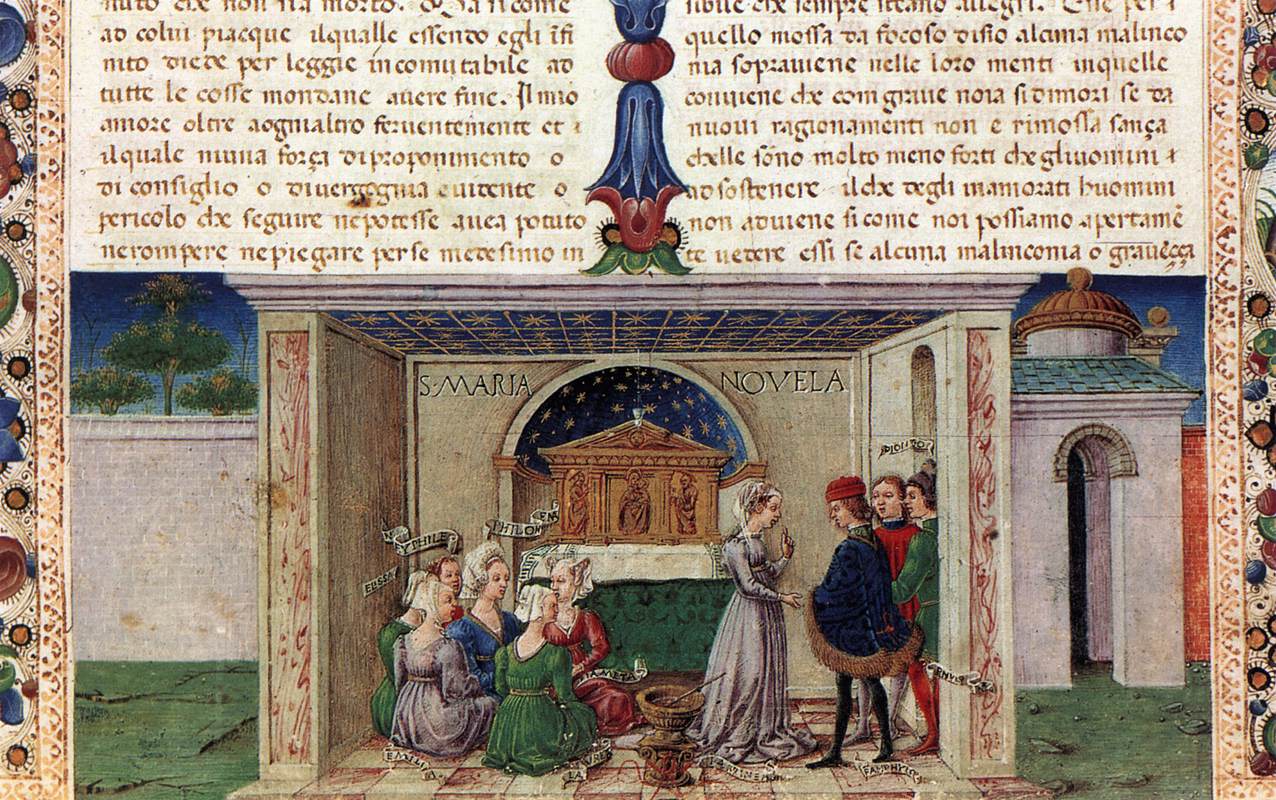 nuto che non sia morto. Ma sicome
ad colui piacque ilqualle essendo egli ifi
nito diede per leggie incomutabile ad
tutte le cosse mondane avere fine. Il mio
amore oltre aognialtro ferventemente et
ilquale niuna força diproponimento o
di consiglio o divergogma evidente o
pericolo che seguire nepotesse avea potuto
nerompere nepiegare perse medesimo in
sibile che sempre stiano allegri. Che per
quello mossa da focoso disio alcuna malinco
nia sopraviene nelle loro menti inquelle
conviene che con grave noia sidimori se da
nuovi ragionamenti non e rimossa sança
chelle sono molto meno forti che gliuomini
ad sostenere il che degli inamorati huomini
non adviene si come noi possiamo apertamē
te vedere essi se alcuna malinconia o graveçça
S·MARIA NOVELA
DIONEO
NEYPHILE
PHILOMENA
ELISSA
EMILIA
PAMPHYLO